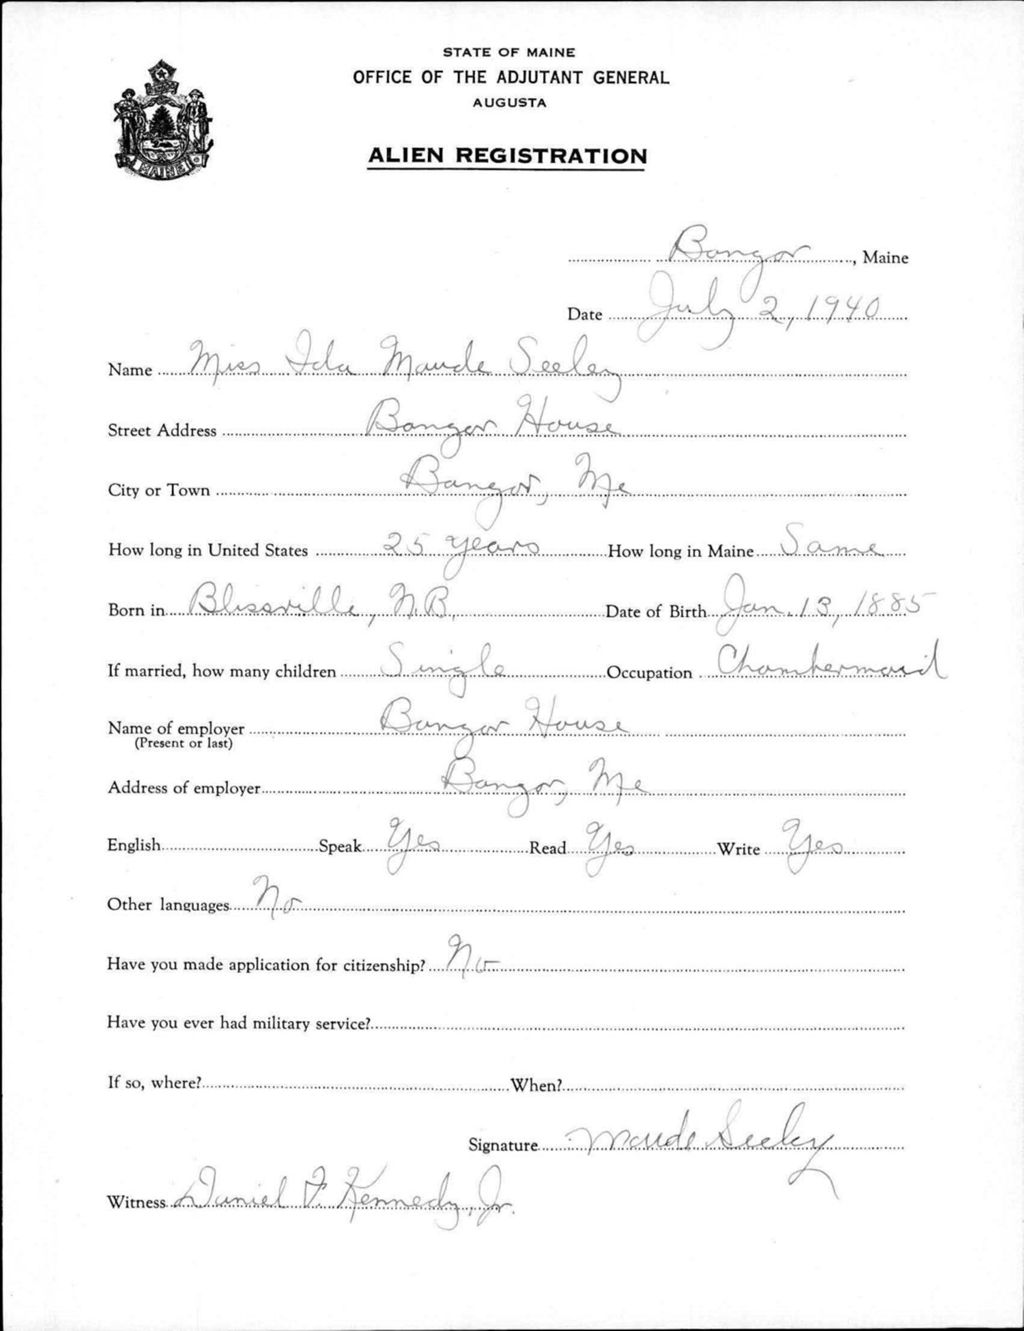 STATE OF MAINE
OFFICE OF THE ADJUTANT GENERAL
AUGUSTA
MAINE
ALIEN REGISTRATION
Bangor, Maine
Date July 2, 1940
Name Miss Ida Maude Seeley
Street Address Bangor House
City or Town Bangor, Me
How long in United States 25 years How long in Maine Same
Born in Blissville, N.B. Date of Birth Jan. 13, 1885
If married, how many children Single Occupation Chambermaid
Name of employer Bangor House
(Present or last)
Address of employer Bangor, Me
English Speak Yes Read Yes Write Yes
Other languages No
Have you made application for citizenship? No
Have you ever had military service?
If so, where? When?
Signature Maude Seeley
Witness Daniel F. Kennedy, Jr.